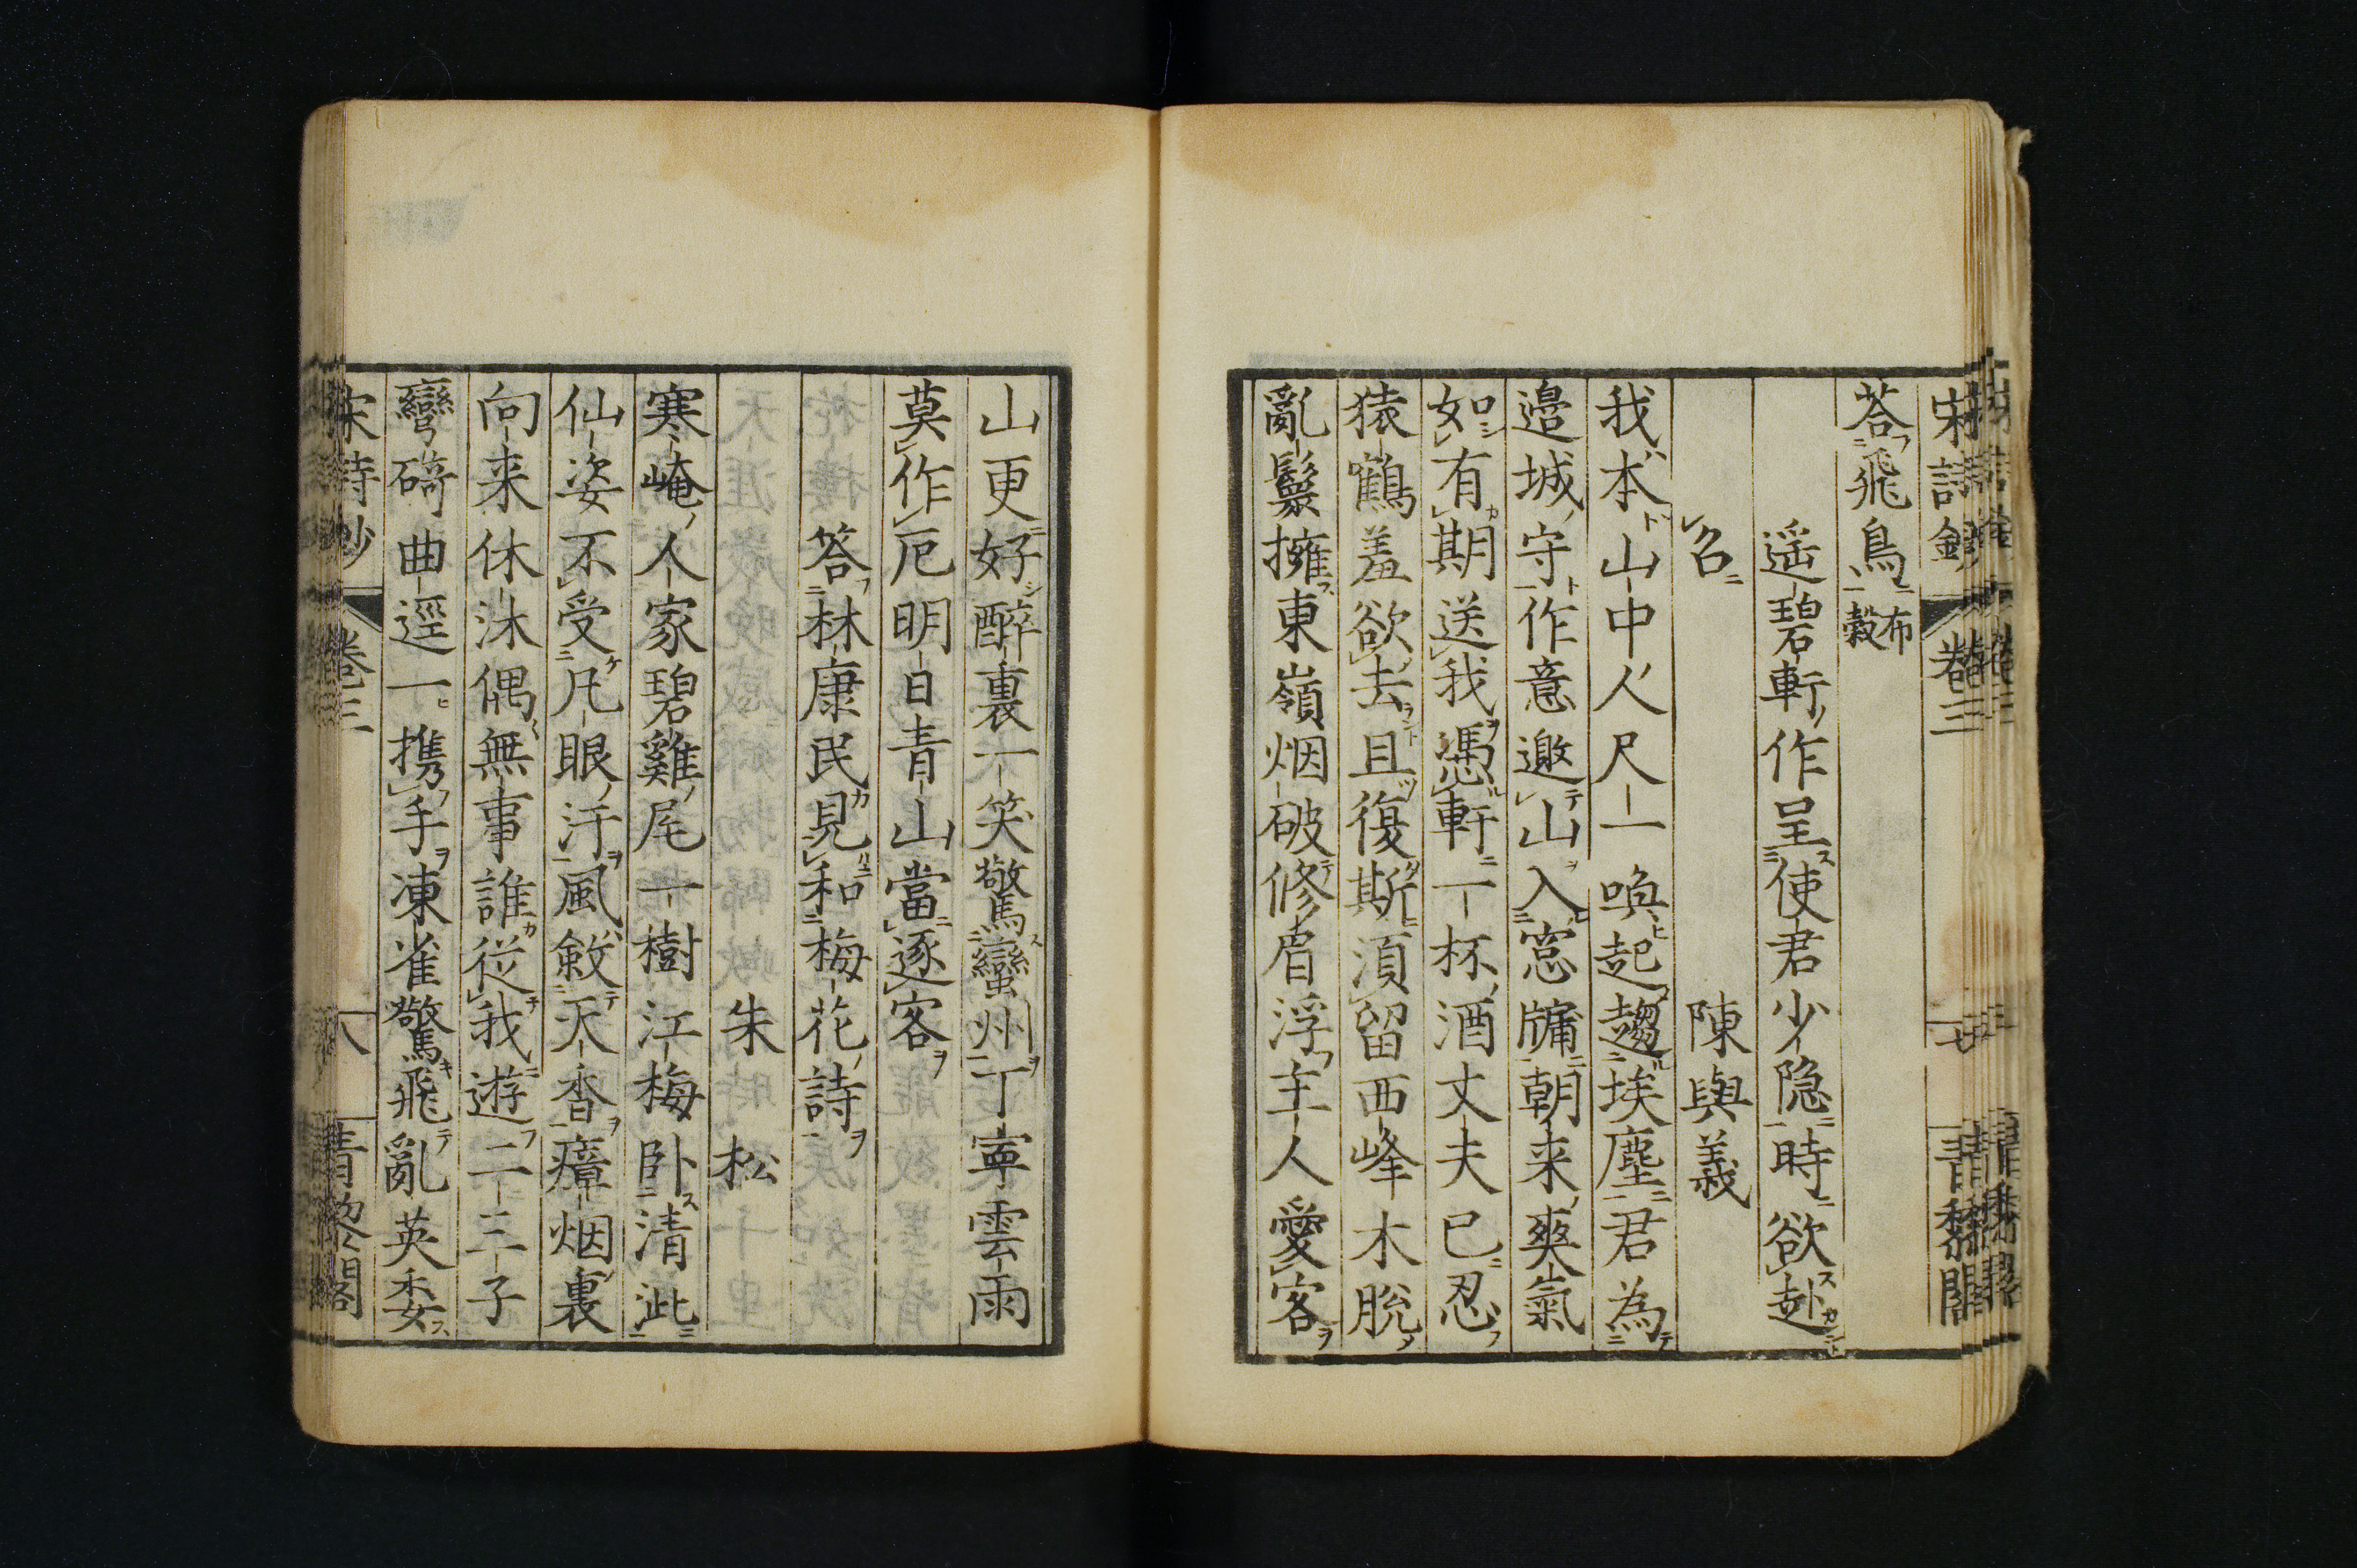 答飛鳥布穀
遥碧軒作呈使君少隐時欲赴
召 陳與義
我本山中人尺一喚起趨埃塵君為
邉城守作意邀山入窓牖朝来爽氣
如有期送我憑軒一杯酒丈夫已忍
猿鶴羞欲去且復斯須留西峰木脫
亂鬟擁東嶺烟破修眉浮主人愛客
山更好醉裏一笑驚蠻州丁寧雲雨
莫作厄明日青山當逐客
答林康民見和梅花詩
朱松
寒崦人家碧雞尾一樹江梅卧清泚
仙姿不受凡眼汙風斂天香瘴烟裏
向来休沐偶無事誰從我遊二三子
彎碕曲逕一携手凍雀驚飛亂英委
宋詩鈔 卷三 八 青黎閣